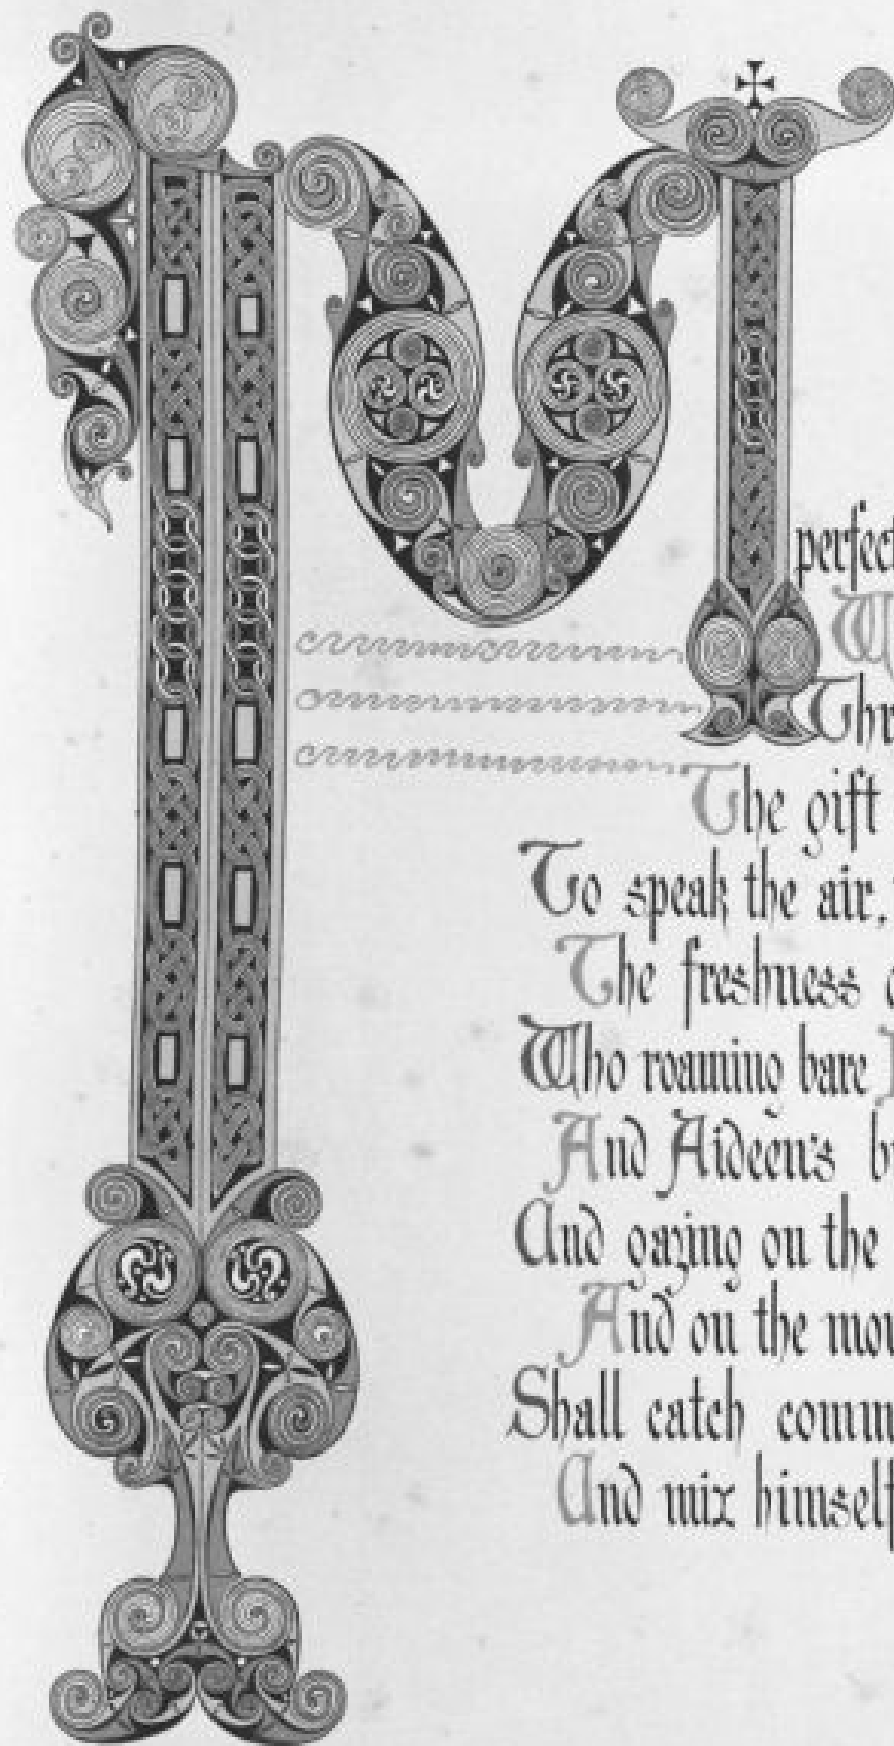 M
perfec
W
Thr
The gift
To speak the air,
The freshness
Who roaming bare
And Aideen's b
And gazing on the
And on the mou
Shall catch comm
And mix himself